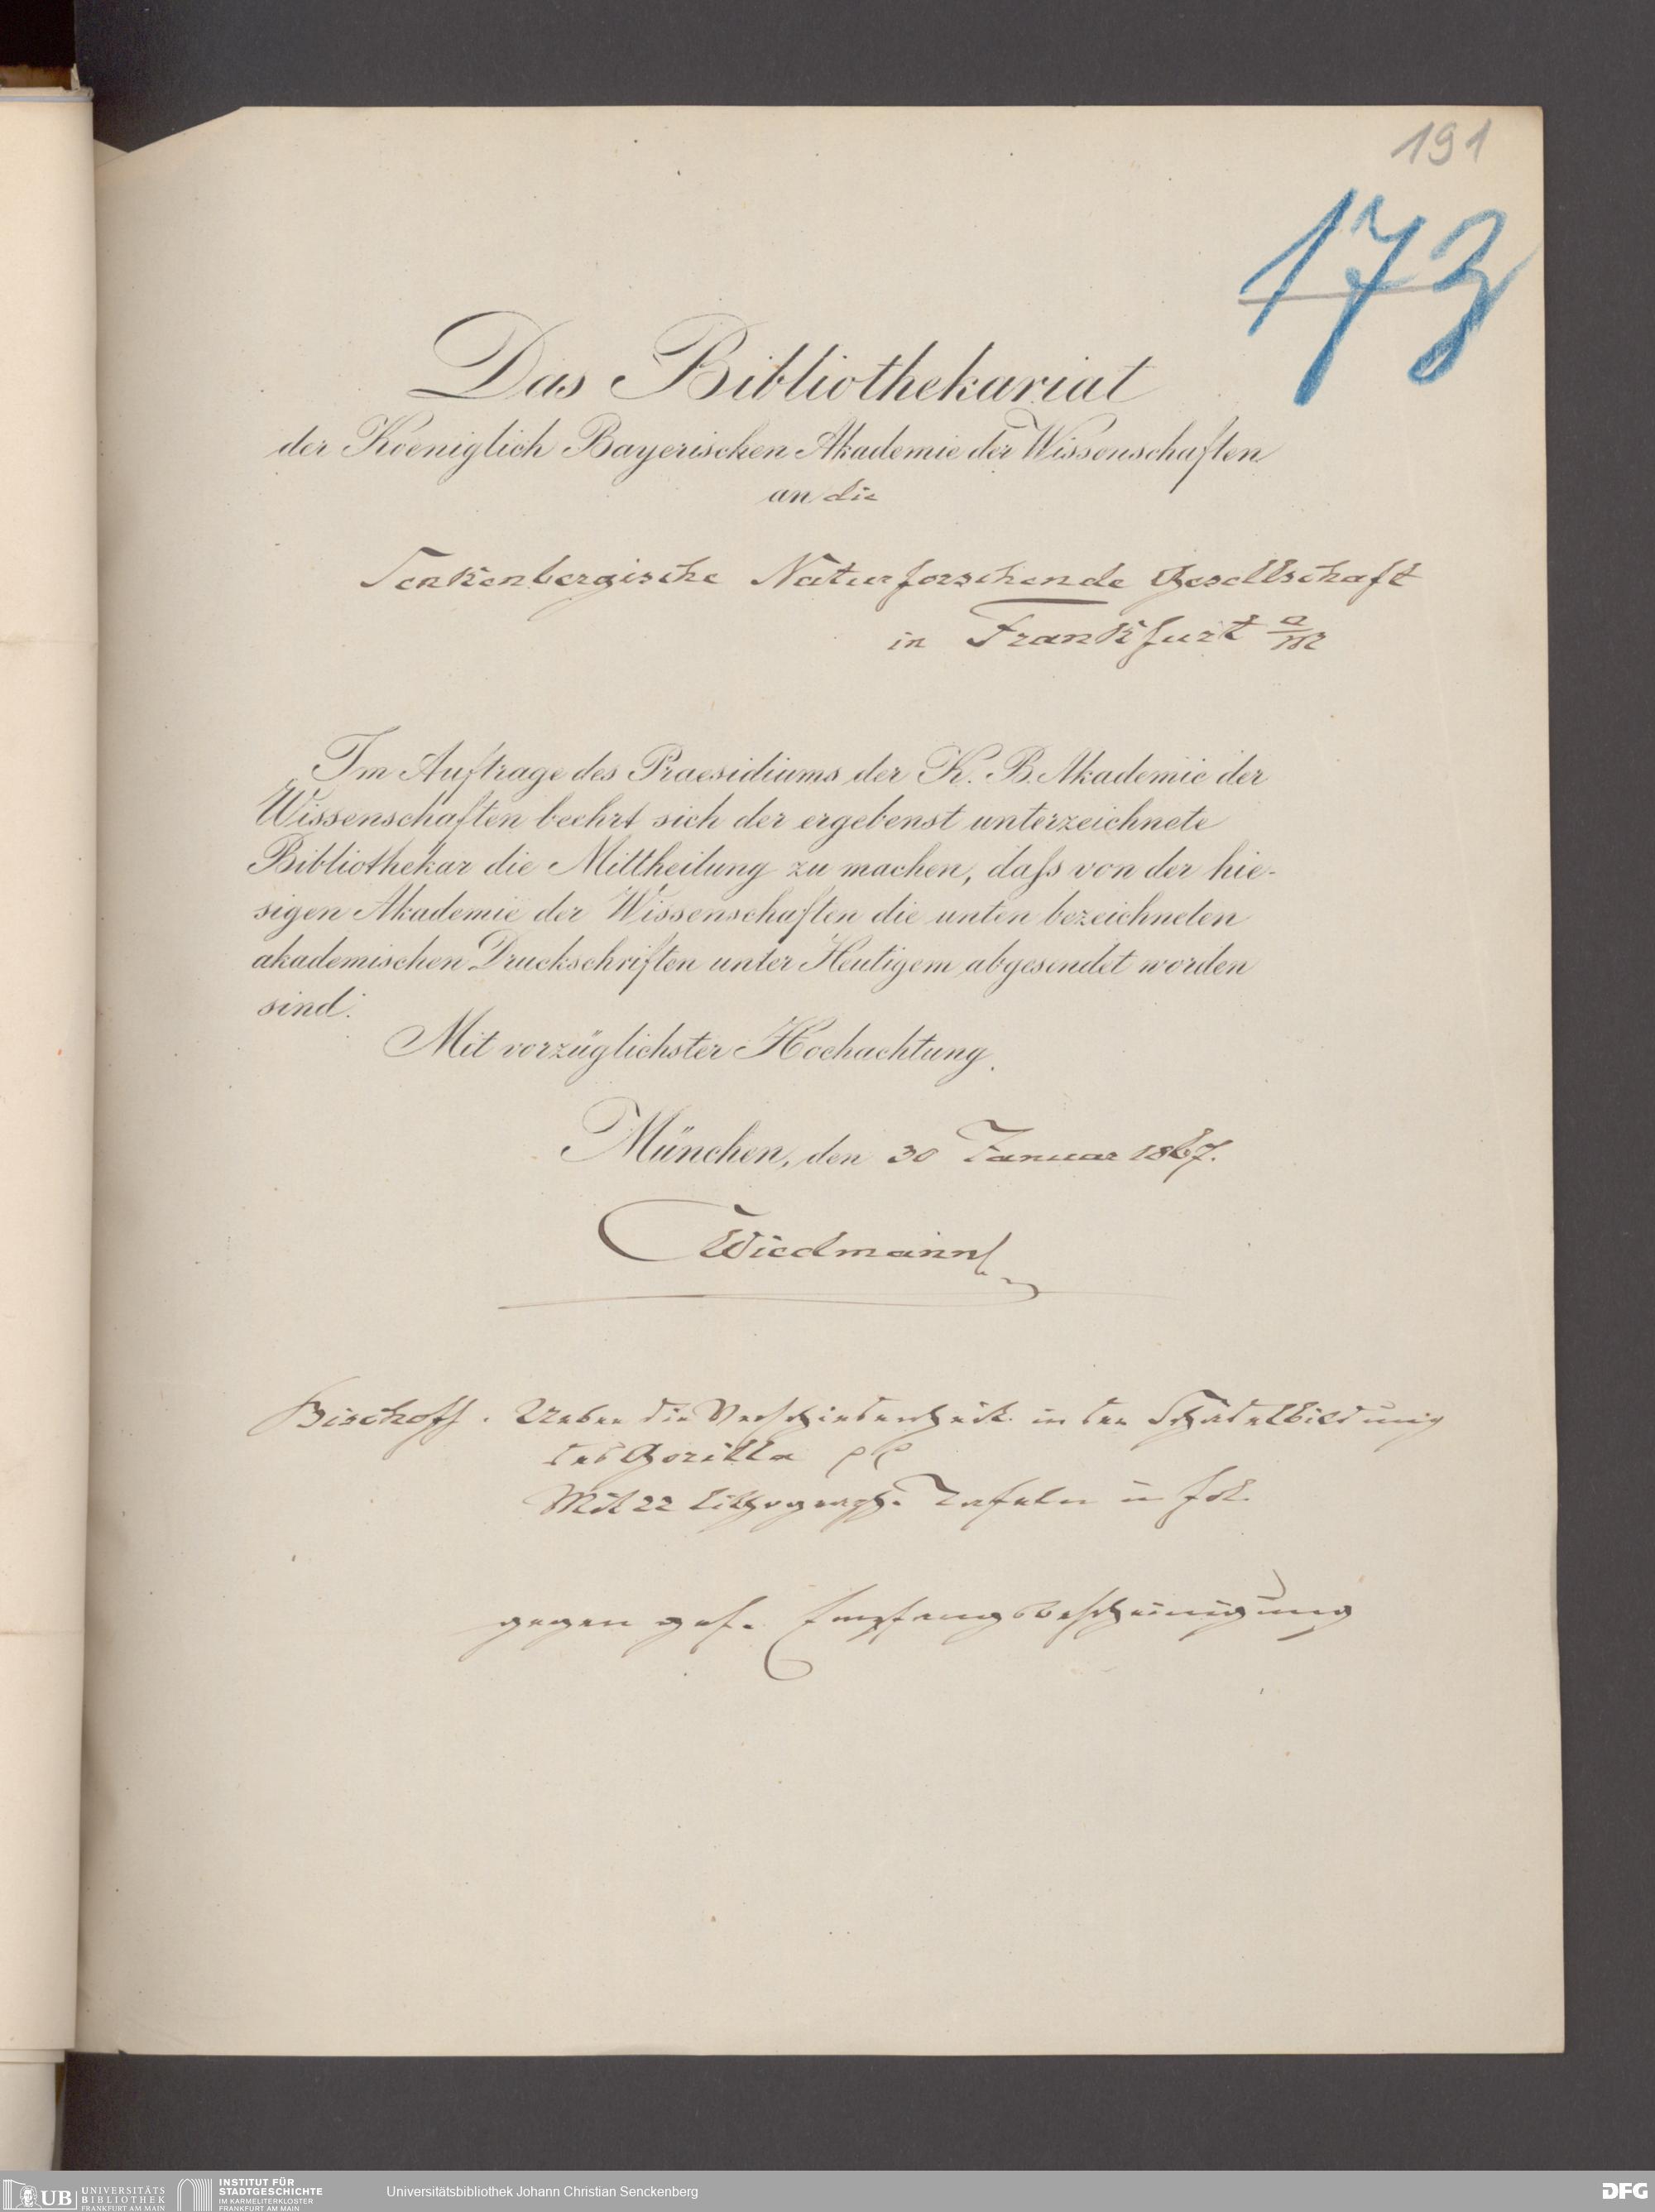 191
173
Das Bibliothekariat
der Koeniglich Bayerischen Akademie der Wissenschaften
an die
Senkenbergische Naturforschende Gesellschaft
in Frankfurt a/M
Im Auftrage des Praesidiums der K. B. Akademie der
Wissenschaften beehrt sich der ergebenst unterzeichnete
Bibliothekar die Mittheilung zu machen, daſs von der hie-
sigen Akademie der Wissenschaften die unten bezeichneten
akademischen Druckschriften unter Heutigem abgesendet worden
sind.
Mit vorzüglichster Hochachtung.
München, den 30 Januar 1867.
Wiedmann
Bischoff. Ueber die Verschiedenheit in der Schädelbildung
des Gorilla pp
Mit 22 lithograph. Tafeln in fol.
gegen gef. Empfangsbescheinigung
UB UNIVERSITÄTS
BIBLIOTHEK
FRANKFURT AM MAIN
INSTITUT FÜR
STADTGESCHICHTE
IM KARMELITERKLOSTER
FRANKFURT AM MAIN
Universitätsbibliothek Johann Christian Senckenberg
DFG